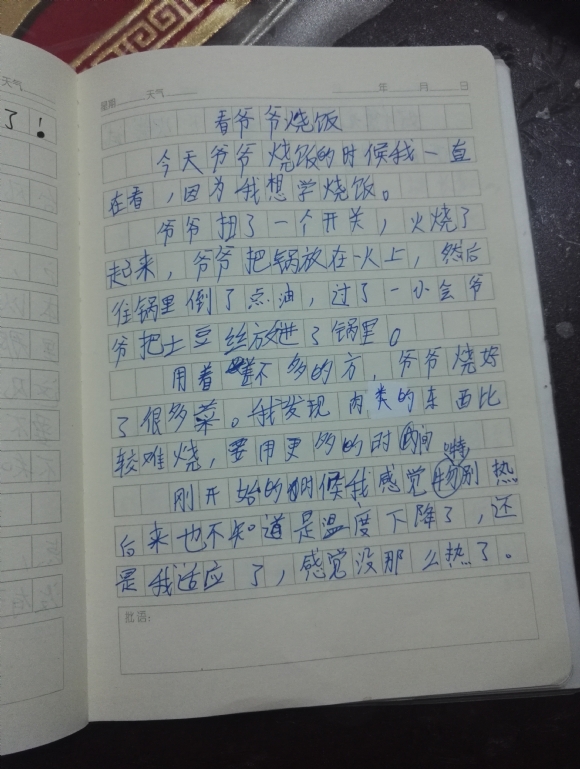 天气
了！
星期 天气 年 月 日
看爷爷烧饭
今天爷爷烧饭的时候我一直
在看，因为我想学烧饭。
爷爷扭了一个开关，火烧了
起来，爷爷把锅放在火上，然后
往锅里倒了点油，过了一小会爷
爷把土豆丝放进了锅里。
用着差不多的方，爷爷烧好
了很多菜。我发现肉类的东西比
较难烧，要用更多的时间
刚开始的时候我感觉特别热
后来也不知道是温度下降了，还
是我适应了，感觉没那么热了。
批语：